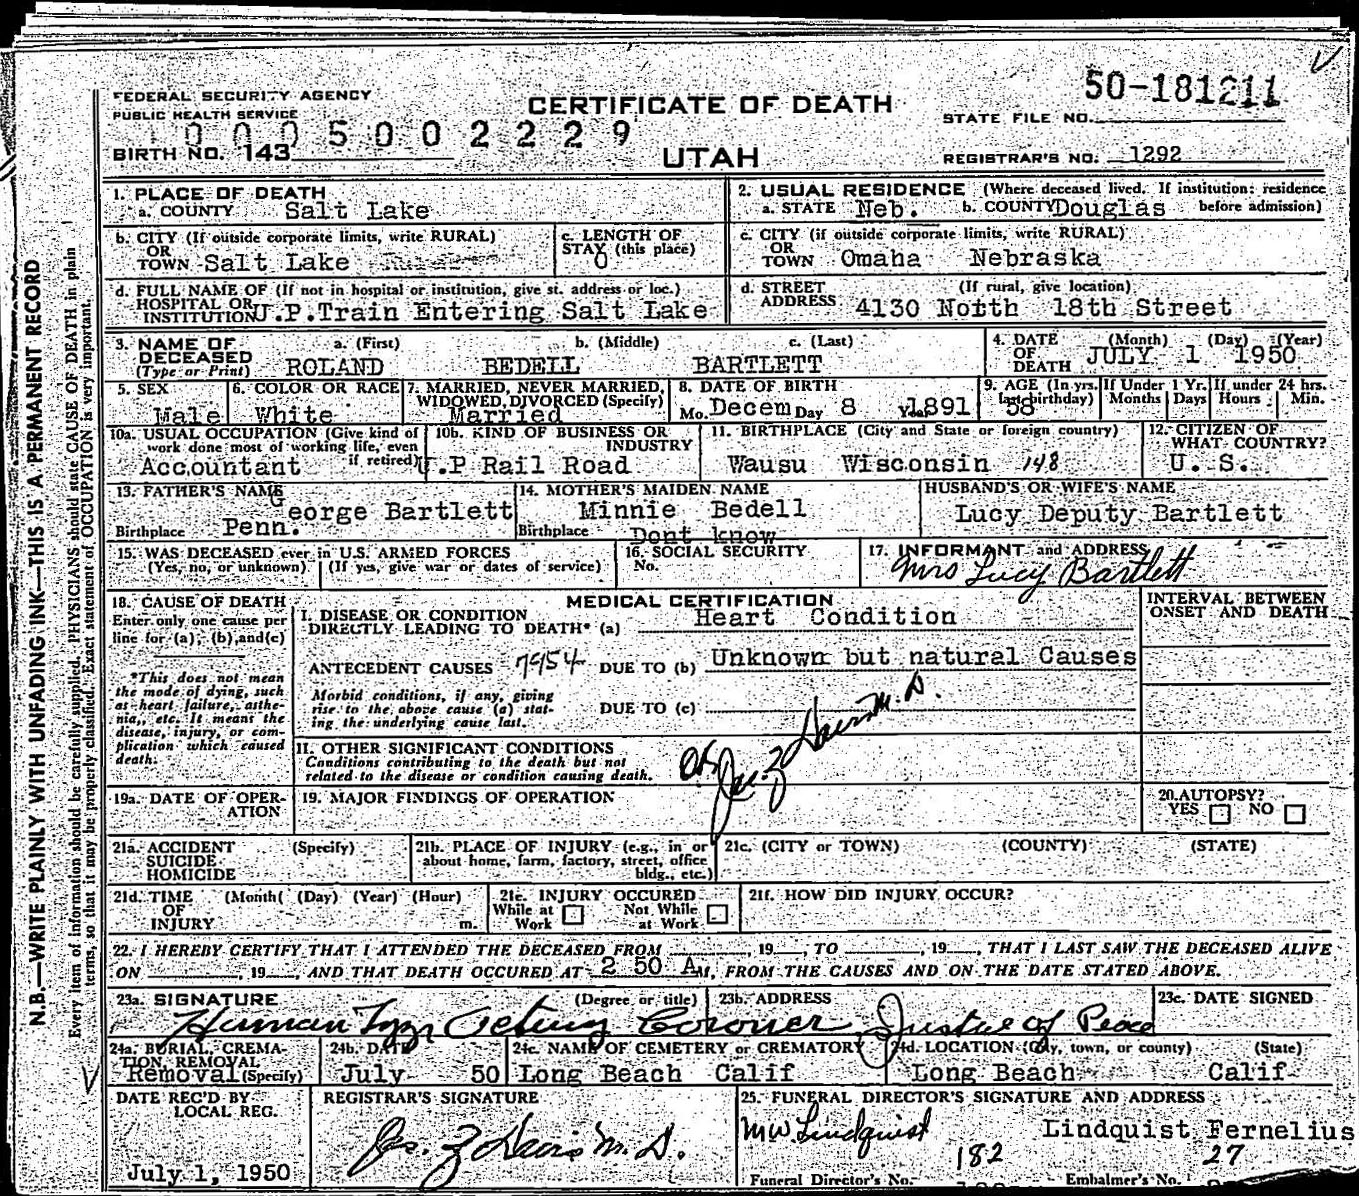 50-181211
FEDERAL SECURITY AGENCY
PUBLIC HEALTH SERVICE
CERTIFICATE OF DEATH
STATE FILE NO.
0005002229
BIRTH NO. 143
UTAH
REGISTRAR'S NO. 1292
1. PLACE OF DEATH
a. COUNTY Salt Lake
2. USUAL RESIDENCE (Where deceased lived. If institution: residence before admission)
a. STATE Neb. b. COUNTY Douglas
b. CITY (If outside corporate limits, write RURAL)
OR
TOWN Salt Lake
c. LENGTH OF
STAY (this place)
0
c. CITY (if outside corporate limits, write RURAL)
OR
TOWN Omaha Nebraska
d. FULL NAME OF (If not in hospital or institution, give st. address or loc.)
HOSPITAL OR
INSTITUTION U.P.Train Entering Salt Lake
d. STREET (If rural, give location)
ADDRESS 4130 Notth 18th Street
3. NAME OF a. (First) b. (Middle) c. (Last)
DECEASED
(Type or Print) ROLAND BEDELL BARTLETT
4. DATE (Month) (Day) (Year)
OF
DEATH JULY 1 1950
5. SEX
Male
6. COLOR OR RACE
White
7. MARRIED, NEVER MARRIED,
WIDOWED, DIVORCED (Specify)
Married
8. DATE OF BIRTH
Mo. Decem Day 8 Yr. 1891
9. AGE (In yrs. last birthday)
58
If Under 1 Yr.
Months Days
If under 24 hrs.
Hours Min.
10a. USUAL OCCUPATION (Give kind of
work done most of working life, even
if retired)
Accountant
10b. KIND OF BUSINESS OR
INDUSTRY
U.P Rail Road
11. BIRTHPLACE (City and State or foreign country)
Wausu Wisconsin 148
12. CITIZEN OF
WHAT COUNTRY?
U. S.
13. FATHER'S NAME
George Bartlett
Birthplace Penn.
14. MOTHER'S MAIDEN NAME
Minnie Bedell
Birthplace Dont know
HUSBAND'S OR WIFE'S NAME
Lucy Deputy Bartlett
15. WAS DECEASED ever in U.S. ARMED FORCES
(Yes, no, or unknown) (If yes, give war or dates of service)
16. SOCIAL SECURITY
No.
17. INFORMANT and ADDRESS
Mrs Lucy Bartlett
18. CAUSE OF DEATH
Enter only one cause per
line for (a), (b), and (c)
*This does not mean
the mode of dying, such
as heart failure, asthe-
nia, etc. It means the
disease, injury, or com-
plication which caused
death.
MEDICAL CERTIFICATION
I. DISEASE OR CONDITION
DIRECTLY LEADING TO DEATH* (a) Heart Condition
ANTECEDENT CAUSES 7954 DUE TO (b) Unknown but natural Causes
Morbid conditions, if any, giving
rise to the above cause (a) stat-
ing the underlying cause last.
DUE TO (c)
INTERVAL BETWEEN
ONSET AND DEATH
II. OTHER SIGNIFICANT CONDITIONS
Conditions contributing to the death but not
related to the disease or condition causing death.
19a. DATE OF OPER-
ATION
19. MAJOR FINDINGS OF OPERATION
20. AUTOPSY?
YES NO
21a. ACCIDENT (Specify)
SUICIDE
HOMICIDE
21b. PLACE OF INJURY (e.g., in or
about home, farm, factory, street, office
bldg., etc.)
21c. (CITY or TOWN) (COUNTY) (STATE)
21d. TIME (Month( (Day) (Year) (Hour)
OF
INJURY m.
21e. INJURY OCCURED
While at Work Not While at Work
21f. HOW DID INJURY OCCUR?
22. I HEREBY CERTIFY THAT I ATTENDED THE DECEASED FROM , 19 , TO , 19 , THAT I LAST SAW THE DECEASED ALIVE
ON , 19 , AND THAT DEATH OCCURED AT 2 50 A M, FROM THE CAUSES AND ON THE DATE STATED ABOVE.
23a. SIGNATURE (Degree or title)
Acting Coroner, Justice of Peace
23b. ADDRESS
23c. DATE SIGNED
24a. BURIAL, CREMA-
TION REMOVAL
Removal (Specify)
24b. DATE
July 50
24c. NAME OF CEMETERY or CREMATORY
Long Beach Calif
24d. LOCATION (City, town, or county) (State)
Long Beach Calif
DATE REC'D BY
LOCAL REG.
July 1, 1950
REGISTRAR'S SIGNATURE
25. FUNERAL DIRECTOR'S SIGNATURE AND ADDRESS
MW Lindquist Lindquist Fernelius
182 27
Funeral Director's No. Embalmer's No.
N.B.—WRITE PLAINLY WITH UNFADING INK—THIS IS A PERMANENT RECORD
Every item of information should be carefully supplied. PHYSICIANS should state CAUSE OF DEATH in plain
terms, so that it may be properly classified. Exact statement of OCCUPATION is very important.